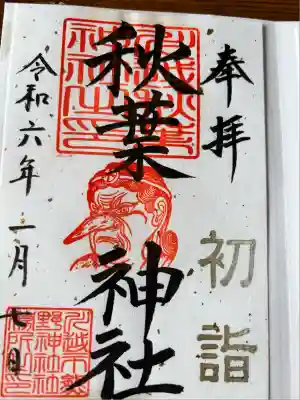 奉拝
初詣
秋葉神社
令和六年一月七日